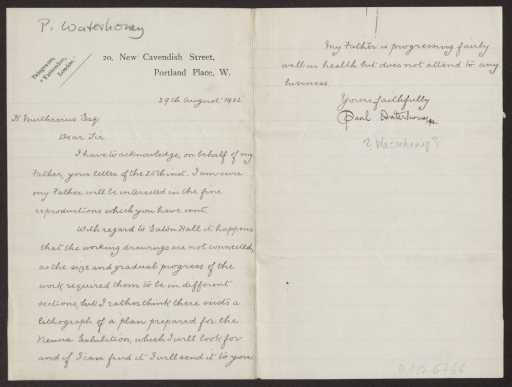 P. Waterhouse
Telegrams,
London.
20, New Cavendish Street,
Portland Place, W.
29th August 1902
H Muthesius Esq
Dear Sir
I have to acknowledge, on behalf of my
Father, your letter of the 26th inst. I am sure
my Father will be interested in the fine
reproductions which you have sent
With regard to Eaton Hall it happens
that the working drawings are not connected,
as the size and gradual progress of the
work required them to be in different
sections, but I rather think there exists a
lithograph of a plan prepared for the
Vienna Exhibition, which I will look for
and if I can find it I will send it to you
My Father is progressing fairly
well in health but does not attend to any
business
Yours faithfully
Paul Waterhouse
? Waterhouse ?